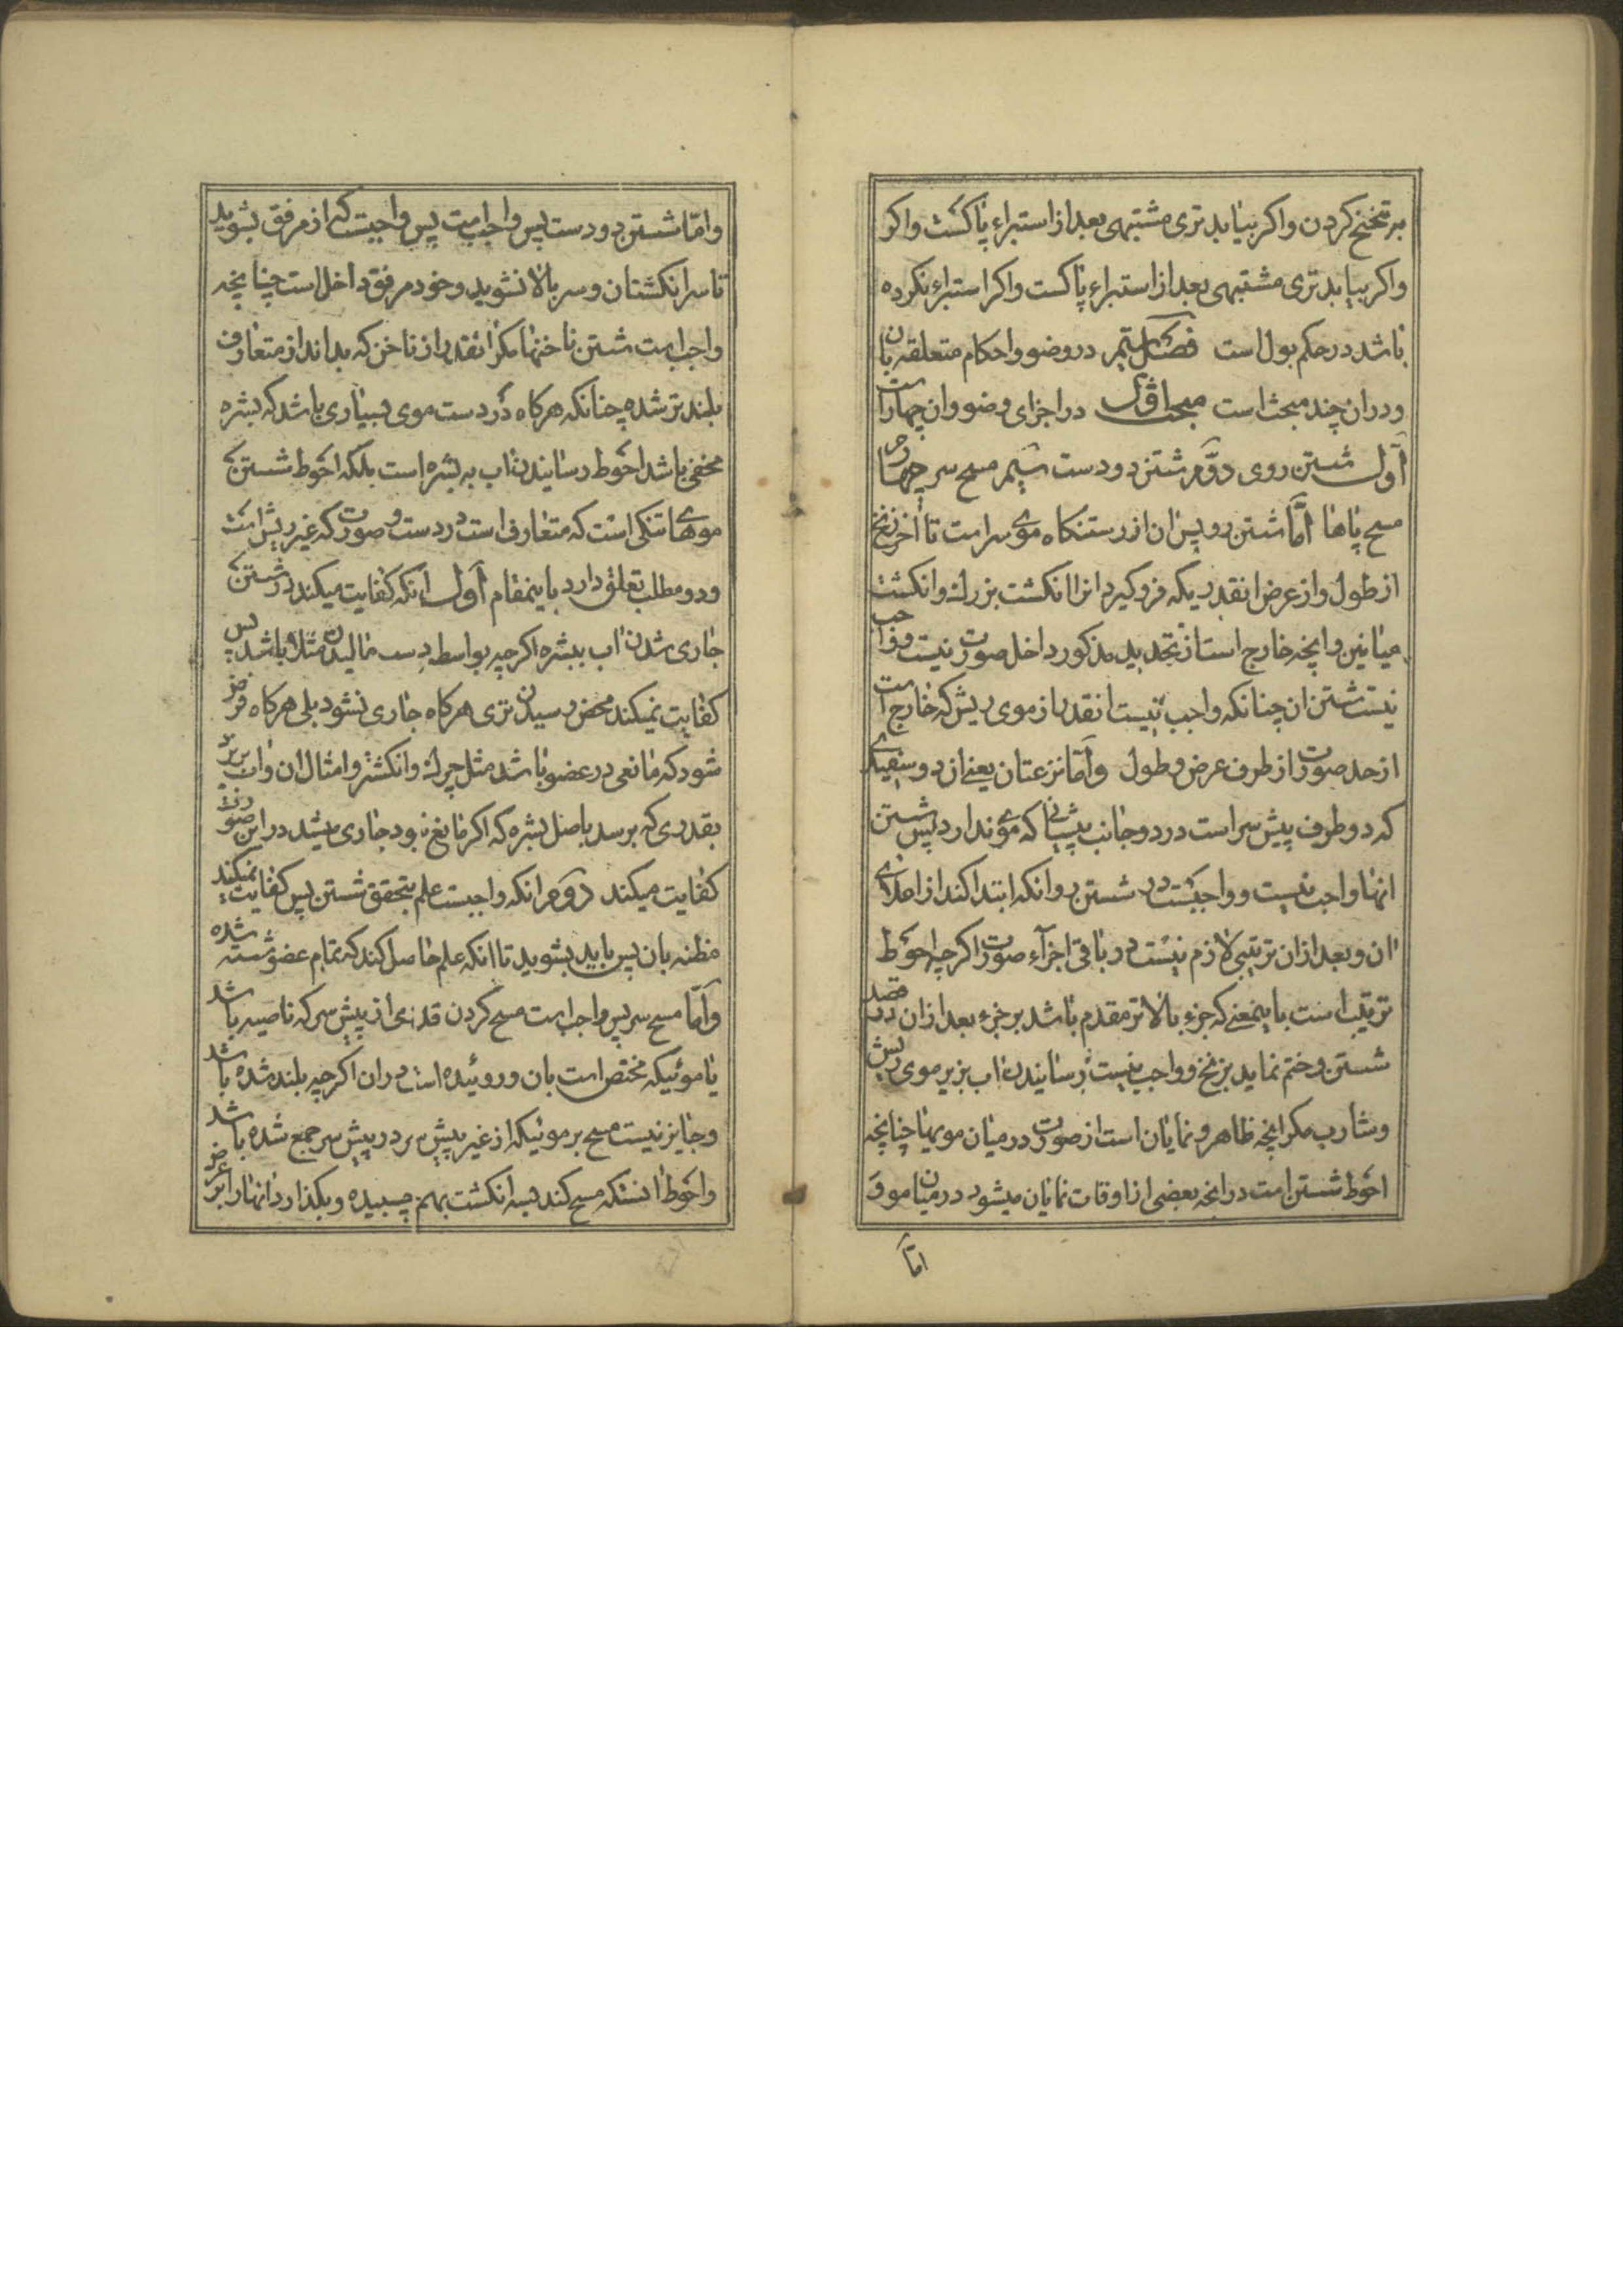 بر تنحنح کردن و اکر بیابد تری مشتبهی بعد از استبراء پاکست و اکر
و اکر بیابد تری مشتبهی بعد از استبراء پاکست و اکر استبراء نکرده
باشد در حکم بول است فصل در وضو و احکام متعلقه بان
و در ان چند مبحث است مبحث اول در اجزای وضو و ان چهار است
اول شستن روی دوم شستن دو دست سیم مسح سر چهارم
مسح پاها امّا شستن رو پس ان از رستنکاه موی سر است تا آخر زنخ
از طول و از عرض انقدریکه فروکیرد انرا انکشت بزرك و انکشت
میانین و انچه خارج است از تحدید مذکور داخل صورت نیست و واجب
نیست شستن ان چنانکه واجب نیست انقدر از موی ریش که خارج است
از حد صورت از طرف عرض و طول و امّا نزعتان یعنی ان دو سفیدی
که دو طرف پیش سر است در دو جانب پیشانی که موی ندارد پس شستن
انها واجب نیست و واجبست در شستن رو انکه ابتدا کند از اعلای
ان و بعد از ان ترتیبی لازم نیست در باقی اجزآء صورت اکرچه احوط
ترتیب است باینمعنی که جزء بالاتر مقدم باشد بر جزء بعد از ان در قصد
شستن و ختم نماید بزنخ و واجب نیست رسانیدن اب بزیر موی ریش
و شارب مکر انچه ظاهر و نمایان است از صورت در میان مویها چنانچه
احوط شستن است در انچه بعضی از اوقات نمایان میشود در میان مو و
امّا
و امّا شستن دو دست پس واجب است پس واجبست که از مرفق بشوید
تا سر انکشتان و سر بالا نشوید و خود مرفق داخل است چنانچه
واجب است شستن ناخنها مکر انقدر از ناخن که بداندازه متعارف
بلند تر شده چنانکه هرکاه در دست موی بسیاری باشد که بشره
مخفی باشد احوط رسانیدن اب به بشره است بلکه احوط شستن
موهای تنکی است که متعارف است در دست و صورت که غیر ریش است
و دو مطلب تعلق دارد باینمقام اول انکه کفایت میکند در شستن
جاری شدن اب ببشره اکرچه بواسطه دست مالیدن مثلا باشد پس
کفایت نمیکند محض رسیدن تری هرکاه جاری نشود بلی هرکاه فرض
شود که مانعی در عضو باشد مثل چرك و انکشتر و امثال ان و اب بریزد
بقدری که برسد باصل بشره که اکر مانع نبود جاری میشد در این صورت
کفایت میکند دوم انکه واجبست علم بتحقق شستن پس کفایت نمیکند
مظنه بان پس باید بشوید تا انکه علم حاصل کند که تمام عضو شسته شده
و امّا مسح سر پس واجب است مسح کردن قدری از پیش سر که ناصیه باشد
یا موئیکه مختص است بان و روئیده است در ان اکرچه بلند شده باشد
و جایز نیست مسح بر موئیکه از غیر پیش سر در پیش سر جمع شده باشد
و احوط انستکه مسح کند بسه انکشت بهم چسبیده و بکذارد انها را بر عرض